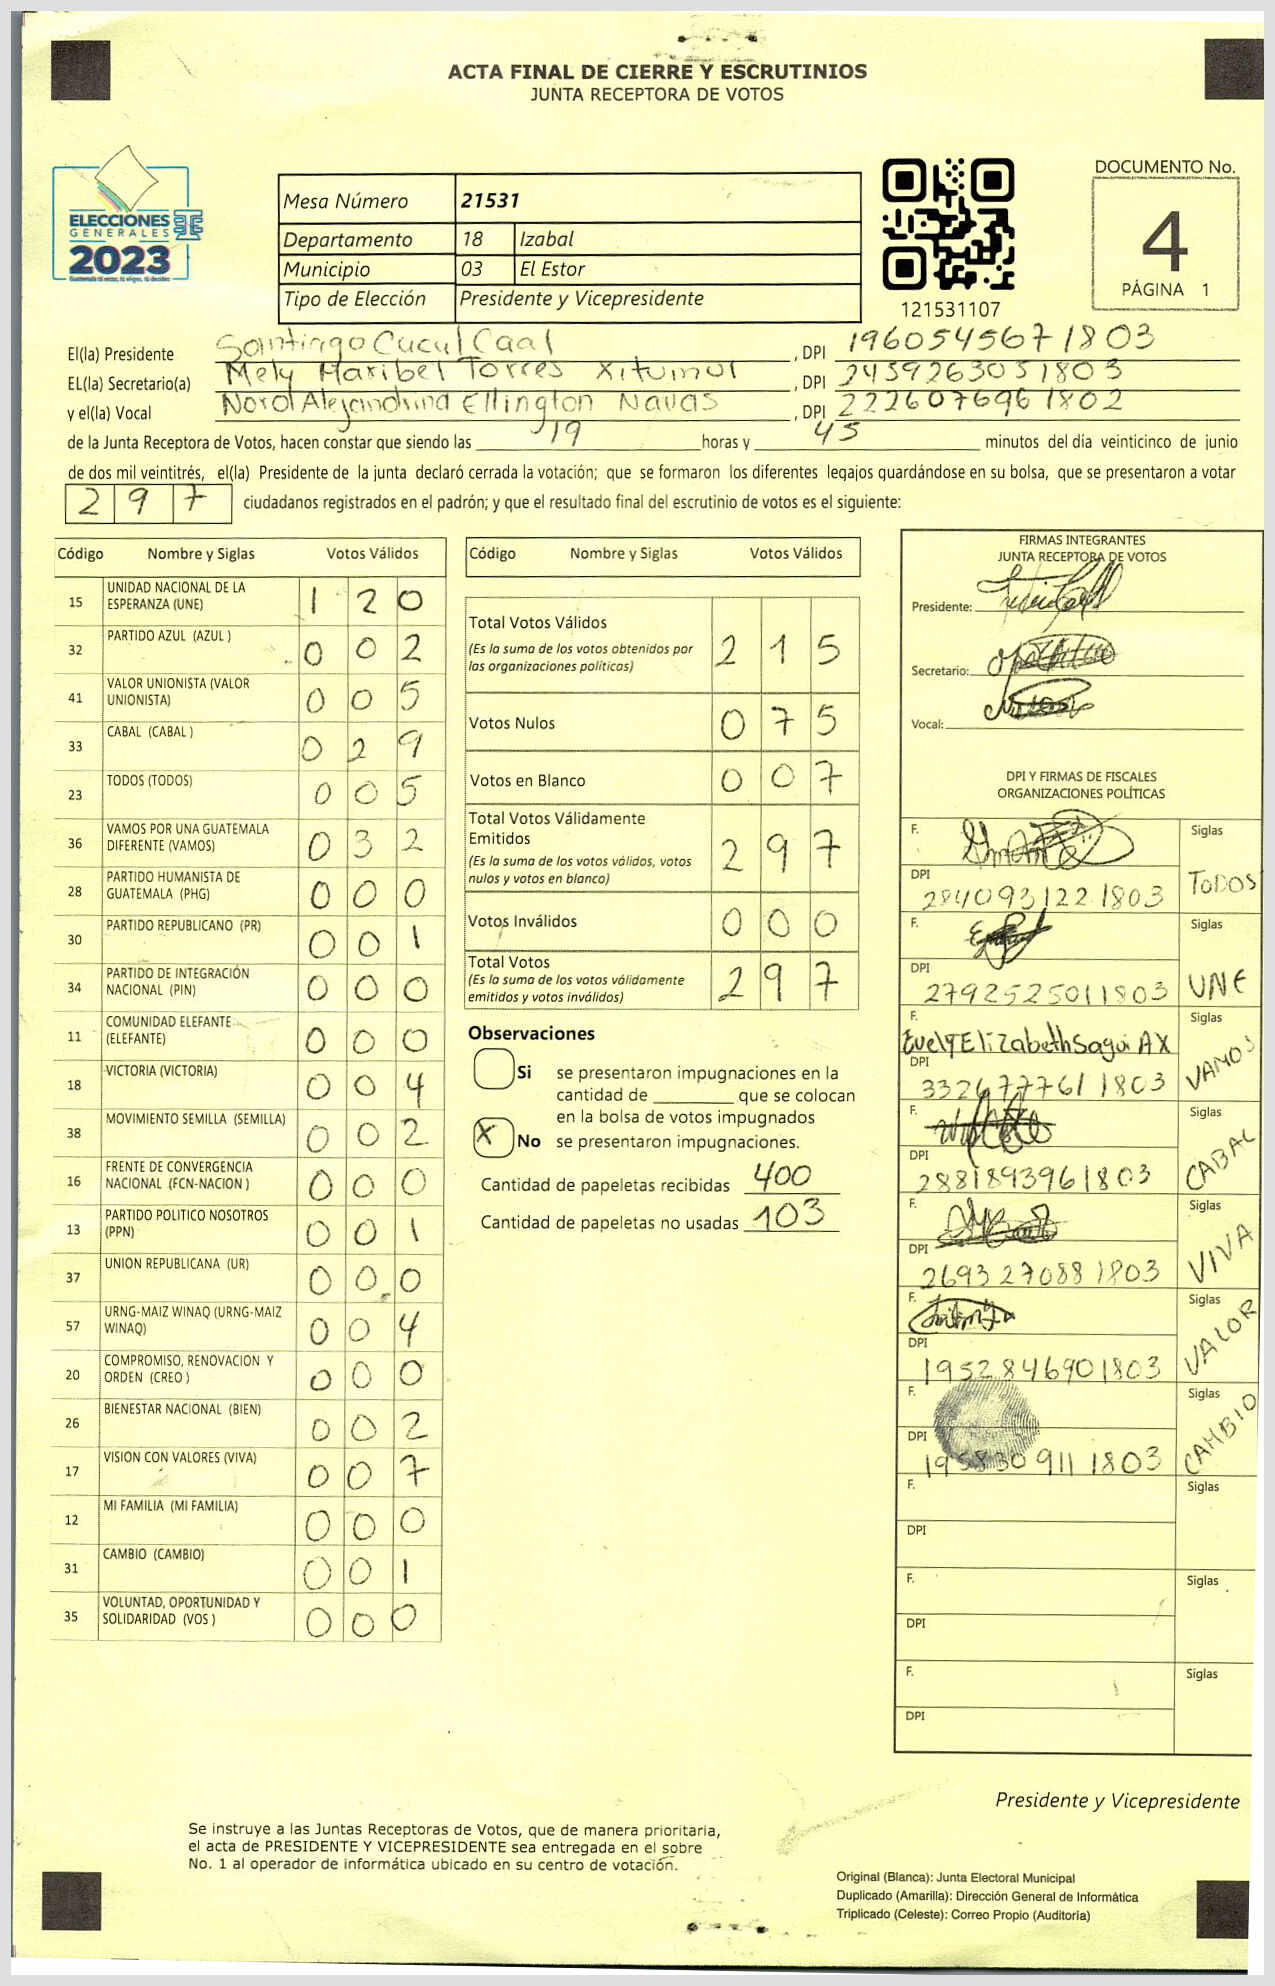 ACTA FINAL DE CIERRE Y ESCRUTINIOS
JUNTA RECEPTORA DE VOTOS
ELECCIONES
GENERALES
2023
Mesa Número 21531
Departamento 18 Izabal
Municipio 03 El Estor
Tipo de Elección Presidente y Vicepresidente
121531107
DOCUMENTO No.
4
PÁGINA 1
El(la) Presidente Santiago Cucul Caal , DPI 1960545671803
EL(la) Secretario(a) Mely Maribel Torres Xitumul , DPI 2459263051803
y el(la) Vocal Nora Alejandrina Ellington Navas , DPI 2226076961802
de la Junta Receptora de Votos, hacen constar que siendo las 19 horas y 45 minutos del día veinticinco de junio
de dos mil veintitrés, el(la) Presidente de la junta declaró cerrada la votación; que se formaron los diferentes legajos guardándose en su bolsa, que se presentaron a votar
297 ciudadanos registrados en el padrón; y que el resultado final del escrutinio de votos es el siguiente:
Código Nombre y Siglas Votos Válidos
15 UNIDAD NACIONAL DE LA ESPERANZA (UNE) 1 2 0
32 PARTIDO AZUL (AZUL ) 0 0 2
41 VALOR UNIONISTA (VALOR UNIONISTA) 0 0 5
33 CABAL (CABAL ) 0 2 9
23 TODOS (TODOS) 0 0 5
36 VAMOS POR UNA GUATEMALA DIFERENTE (VAMOS) 0 3 2
28 PARTIDO HUMANISTA DE GUATEMALA (PHG) 0 0 0
30 PARTIDO REPUBLICANO (PR) 0 0 1
34 PARTIDO DE INTEGRACIÓN NACIONAL (PIN) 0 0 0
11 COMUNIDAD ELEFANTE (ELEFANTE) 0 0 0
18 VICTORIA (VICTORIA) 0 0 4
38 MOVIMIENTO SEMILLA (SEMILLA) 0 0 2
16 FRENTE DE CONVERGENCIA NACIONAL (FCN-NACION ) 0 0 0
13 PARTIDO POLITICO NOSOTROS (PPN) 0 0 1
37 UNION REPUBLICANA (UR) 0 0 0
57 URNG-MAIZ WINAQ (URNG-MAIZ WINAQ) 0 0 4
20 COMPROMISO, RENOVACION Y ORDEN (CREO ) 0 0 0
26 BIENESTAR NACIONAL (BIEN) 0 0 2
17 VISION CON VALORES (VIVA) 0 0 7
12 MI FAMILIA (MI FAMILIA) 0 0 0
31 CAMBIO (CAMBIO) 0 0 1
35 VOLUNTAD, OPORTUNIDAD Y SOLIDARIDAD (VOS ) 0 0 0
Código Nombre y Siglas Votos Válidos
Total Votos Válidos 2 1 5
(Es la suma de los votos obtenidos por
las organizaciones políticas)
Votos Nulos 0 7 5
Votos en Blanco 0 0 7
Total Votos Válidamente
Emitidos 2 9 7
(Es la suma de los votos válidos, votos
nulos y votos en blanco)
Votos Inválidos 0 0 0
Total Votos 2 9 7
(Es la suma de los votos válidamente
emitidos y votos inválidos)
Observaciones
Si se presentaron impugnaciones en la
cantidad de ________ que se colocan
en la bolsa de votos impugnados
X No se presentaron impugnaciones.
Cantidad de papeletas recibidas 400
Cantidad de papeletas no usadas 103
FIRMAS INTEGRANTES
JUNTA RECEPTORA DE VOTOS
Presidente:
Secretario:
Vocal:
DPI Y FIRMAS DE FISCALES
ORGANIZACIONES POLÍTICAS
F. Siglas
DPI 2840931221803 TODOS
F. Siglas
DPI 2792525011803 UNE
F. Evely Elizabeth Saqui AX Siglas
DPI 3326777611803 VAMOS
F. Siglas
DPI 2881893961803 CABAL
F. Siglas
DPI 2693270881803 VIVA
F. Siglas
DPI 1952846901803 VALOR
F. Siglas
DPI 1958309111803 CAMBIO
F. Siglas
DPI
F. Siglas
DPI
F. Siglas
DPI
Presidente y Vicepresidente
Se instruye a las Juntas Receptoras de Votos, que de manera prioritaria,
el acta de PRESIDENTE Y VICEPRESIDENTE sea entregada en el sobre
No. 1 al operador de informática ubicado en su centro de votación.
Original (Blanca): Junta Electoral Municipal
Duplicado (Amarilla): Dirección General de Informática
Triplicado (Celeste): Correo Propio (Auditoría)